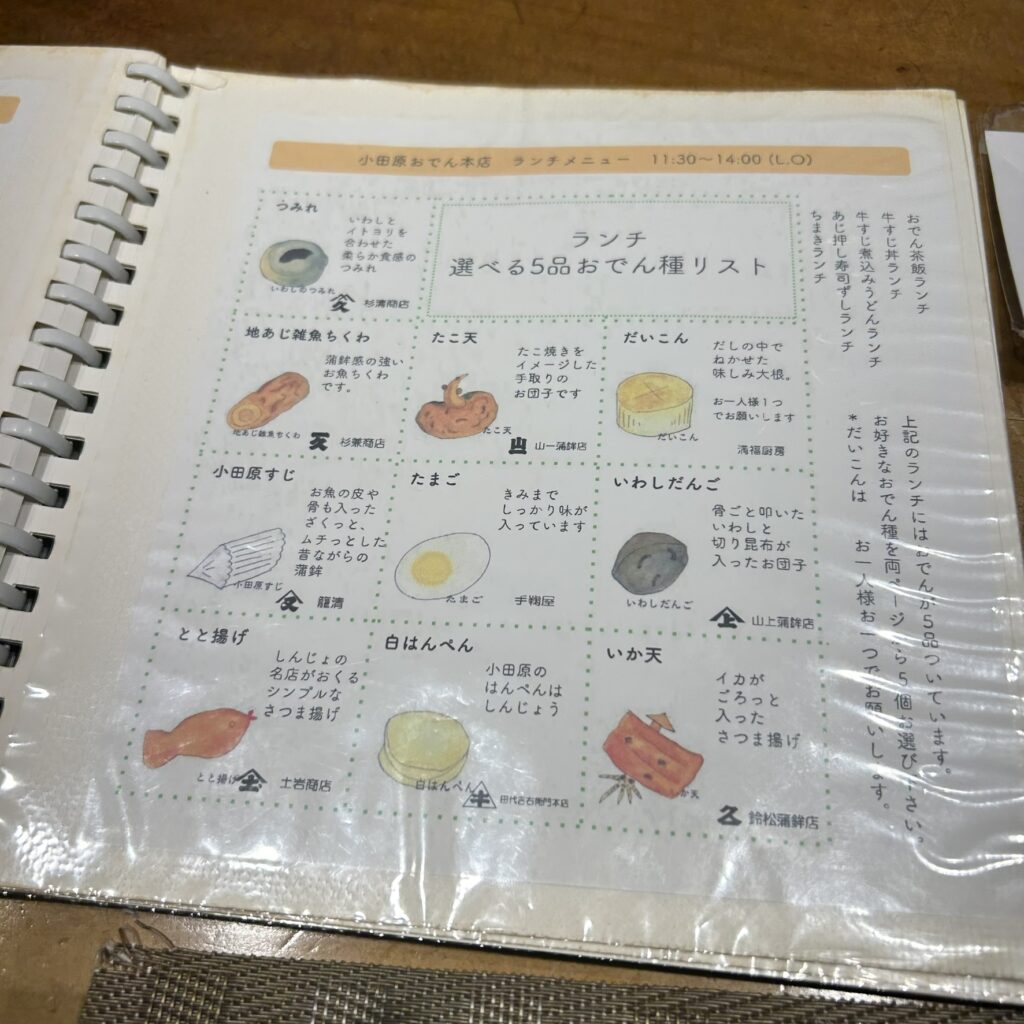 小田原おでん本店　ランチメニュー　11:30～14:00（L.O）
つみれ
いわしと
イトヨリを
合わせた
柔らか食感の
つみれ
いわしのつみれ
杉清商店
ランチ
選べる5品おでん種リスト
地あじ雑魚ちくわ
蒲鉾感の強い
お魚ちくわ
です。
地あじ雑魚ちくわ
杉兼商店
たこ天
たこ焼きを
イメージした
手取りの
お団子です
たこ天
山一蒲鉾店
だいこん
だしの中で
ねかせた
味しみ大根。
お一人様1つ
でお願いします
だいこん
満福厨房
小田原すじ
お魚の皮や
骨も入った
ざくっと、
ムチっとした
昔ながらの
蒲鉾
小田原すじ
籠清
たまご
きみまで
しっかり味が
入っています
たまご
手鞠屋
いわしだんご
骨ごと叩いた
いわしと
切り昆布が
入ったお団子
いわしだんご
山上蒲鉾店
とと揚げ
しんじょの
名店がおくる
シンプルな
さつま揚げ
とと揚げ
土岩商店
白はんぺん
小田原の
はんぺんは
しんじょう
白はんぺん
田代吉右衛門本店
いか天
イカが
ごろっと
入った
さつま揚げ
か天
鈴松蒲鉾店
おでん茶飯ランチ
牛すじ丼ランチ
牛すじ煮込みうどんランチ
あじ押し寿司ずしランチ
ちまきランチ
上記のランチにはおでんが5品ついています。
お好きなおでん種を両ページから5個お選びください。
*だいこんは　お一人様お一つでお願いします。